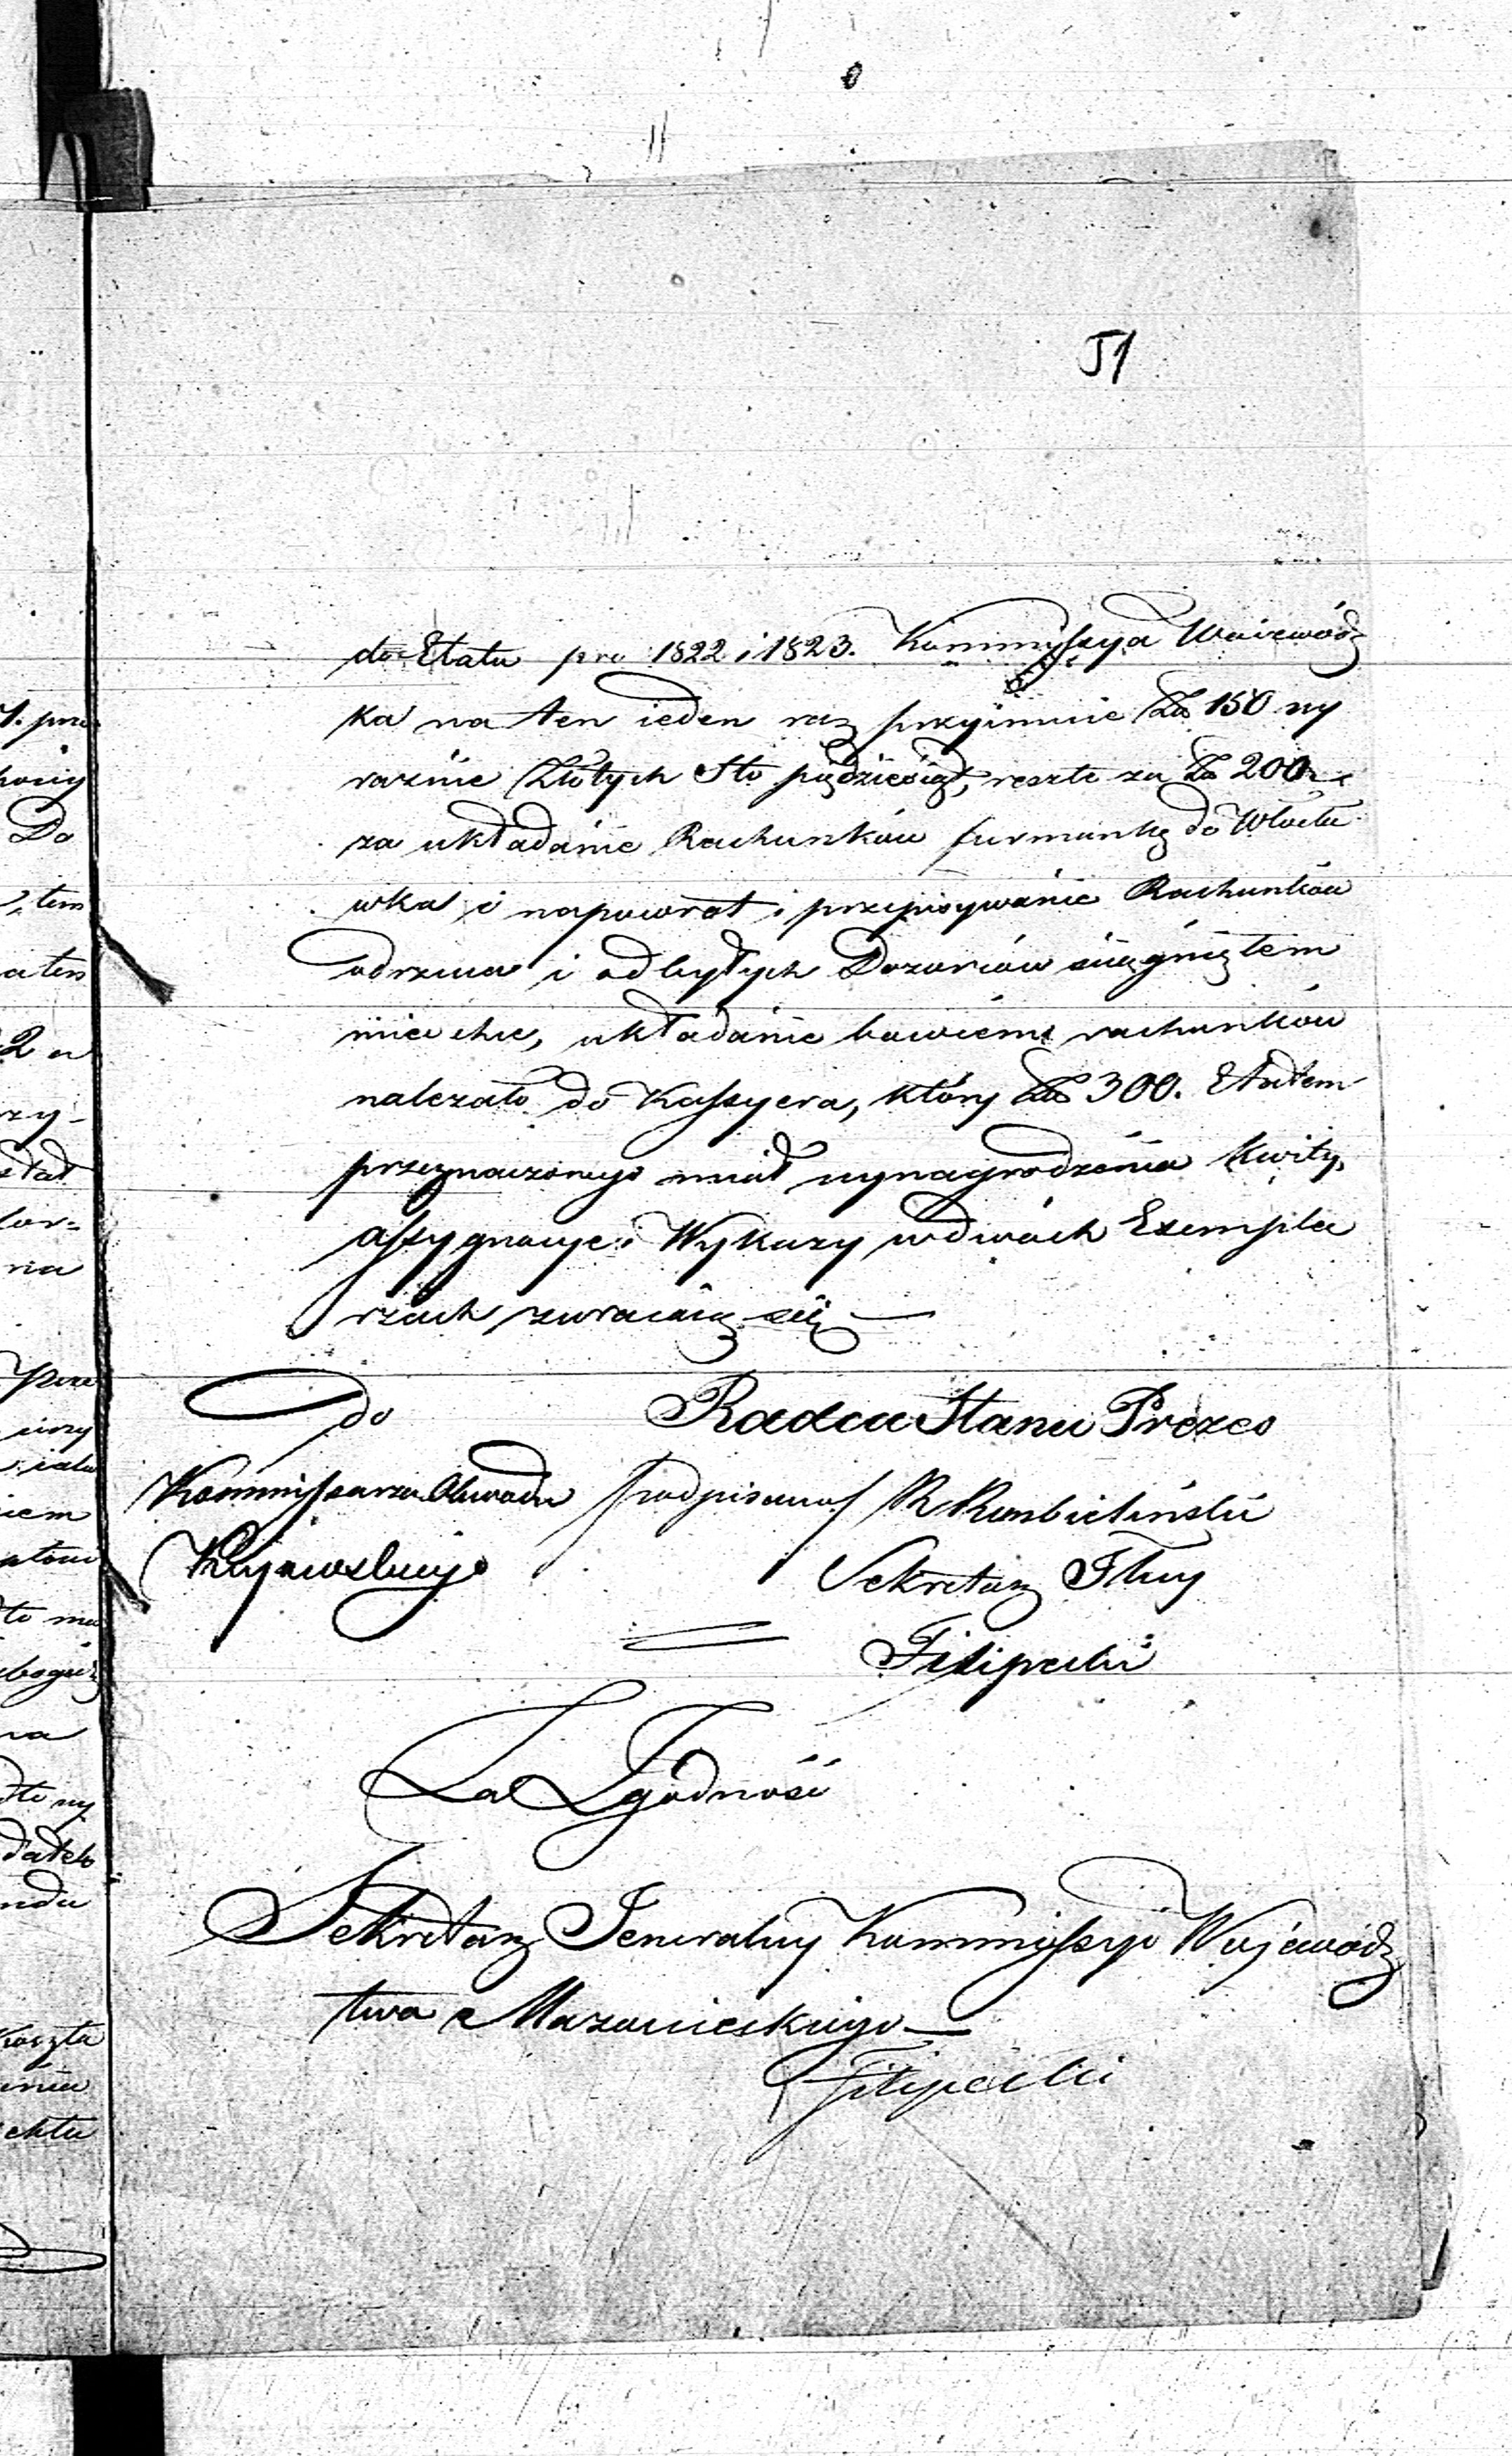 51
do Etatu pro 1822 i 1823. Kommissya Woiewódz
ka na ten ieden raz przyimuie Zł 150 wy
raźnie Złotych Sto pięćdziesiąt, reszte zaś Zł 200
za układanie Rachunków furmankę do Włocła
wka i napowrot i przepisywanie Rachunków
odrzuca i od byłych Dozorców ściągniętem
mieć chce, układanie bowiem rachunków
należało do Kassyera, który Zł 300. Etatem
przeznaczonego miał wynagrodzenia Kwity,
assygnacye i Wykazy w dwóch Exempla
rzach zwracaią się —
Do
Kommissarza Obwodu
Kujawskiego
Radca Stanu Prezes
/podpisano/ R Rembieliński
Sekretarz Jlny
Filipecki
Za Zgodność
Sekretarz Jeneralny Kommissyi Wojewódz
twa Mazowieckiego —
Filipecki